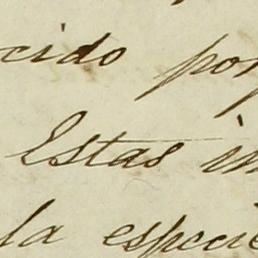 cido por
Estas in
la especie